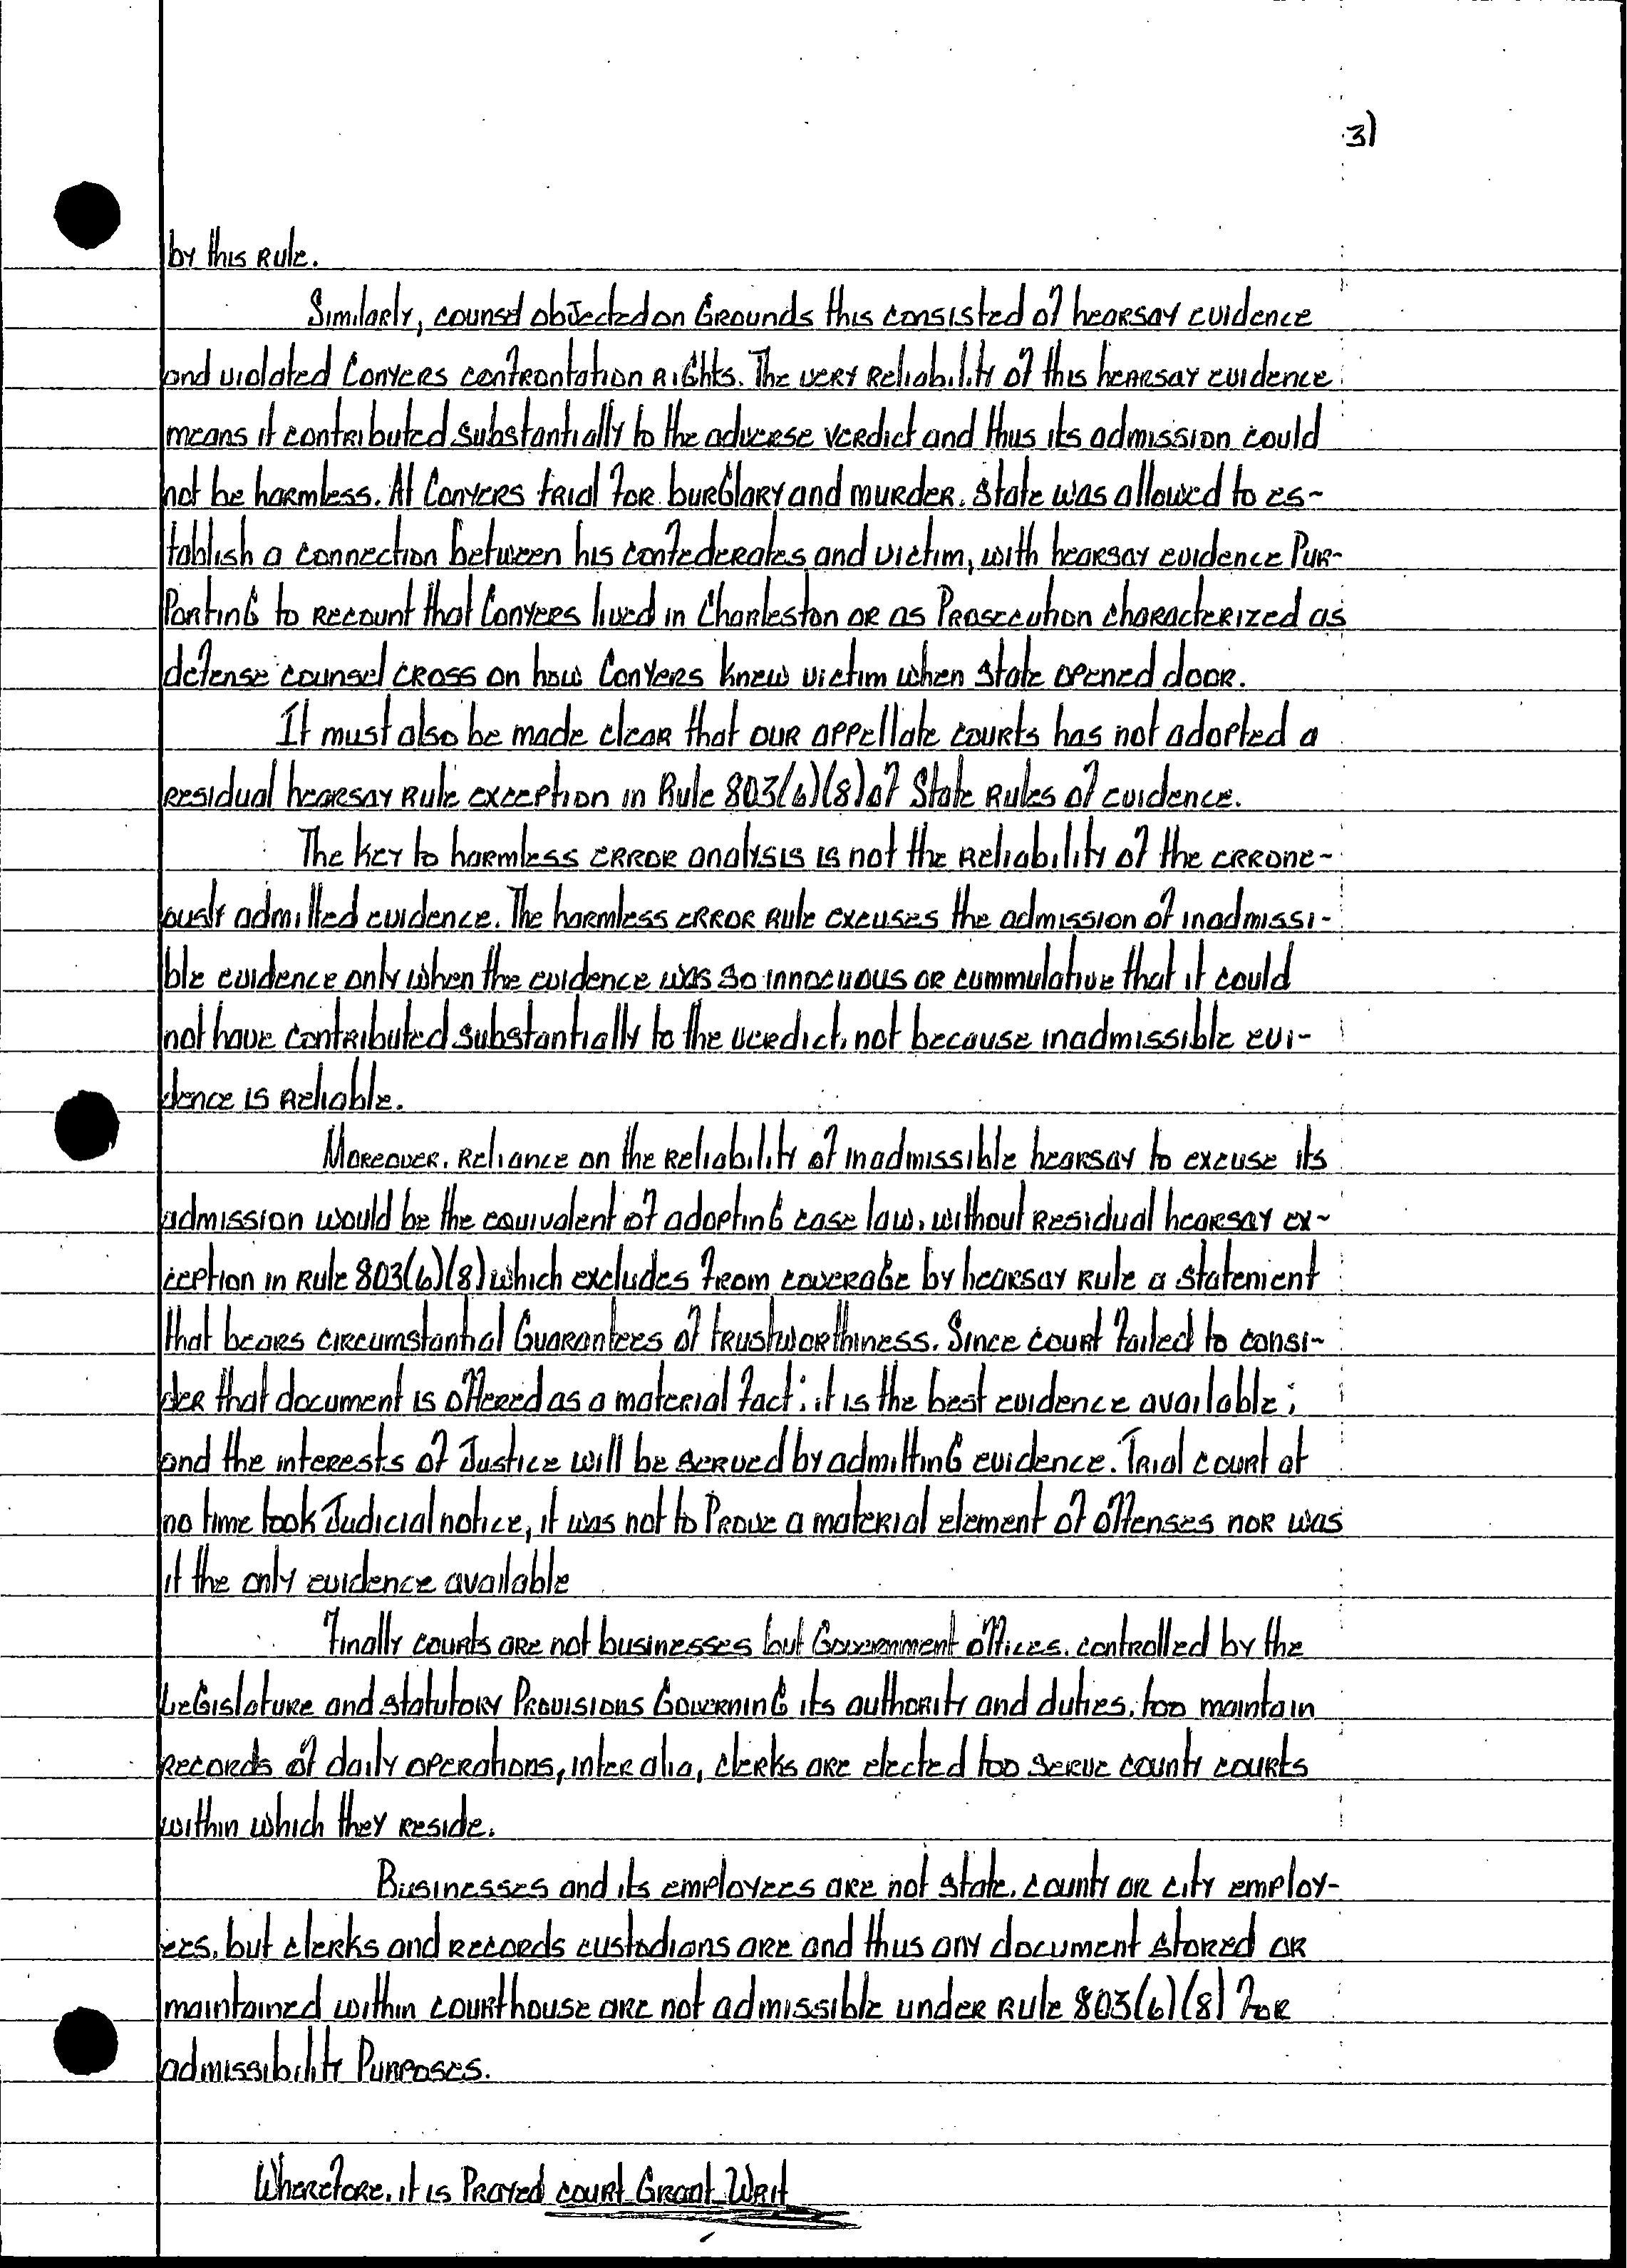 3)
by this Rule.
Similarly, counsel objected on Grounds this consisted of hearsay evidence
and violated Conyers confrontation rights. The very reliability of this hearsay evidence
means it contributed substantially to the adverse verdict and thus its admission could
not be harmless. At Conyers trial for burglary and murder. State was allowed to es-
tablish a connection between his confederates and victim, with hearsay evidence Pur-
Porting to recount that Conyers lived in Charleston or as Prosecution characterized as
defense counsel cross on how Conyers knew victim when State opened door.
It must also be made clear that our appellate courts has not adopted a
residual hearsay rule exception in Rule 803(6)(8) of State Rules of evidence.
The key to harmless error analysis is not the reliability of the errone-
ously admitted evidence. The harmless error rule excuses the admission of inadmissi-
ble evidence only when the evidence was so innocuous or cummulative that it could
not have contributed substantially to the verdict, not because inadmissible evi-
dence is reliable.
Moreover, reliance on the reliability of inadmissible hearsay to excuse its
admission would be the equivalent of adopting case law, without residual hearsay ex-
ception in rule 803(6)(8) which excludes from coverage by hearsay rule a statement
that bears circumstantial Guarantees of trustworthiness. Since court failed to consi-
der that document is offered as a material fact; it is the best evidence available;
and the interests of Justice will be served by admitting evidence. Trial court at
no time took Judicial notice, it was not to Prove a material element of offenses nor was
it the only evidence available
Finally courts are not businesses but Government offices, controlled by the
Legislature and statutory Provisions Governing its authority and duties, too maintain
records of daily operations, inter alia, clerks are elected too serve county courts
within which they reside.
Businesses and its employees are not state, county or city employ-
ees, but clerks and records custodians are and thus any document stored or
maintained within courthouse are not admissible under rule 803(6)(8) for
admissibility Purposes.
Wherefore, it is Prayed court Grant Writ